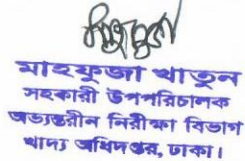 মাহফুজা খাতুন
সহকারী উপপরিচালক
অভ্যন্তরীন নিরীক্ষা বিভাগ
খাদ্য অধিদপ্তর, ঢাকা।